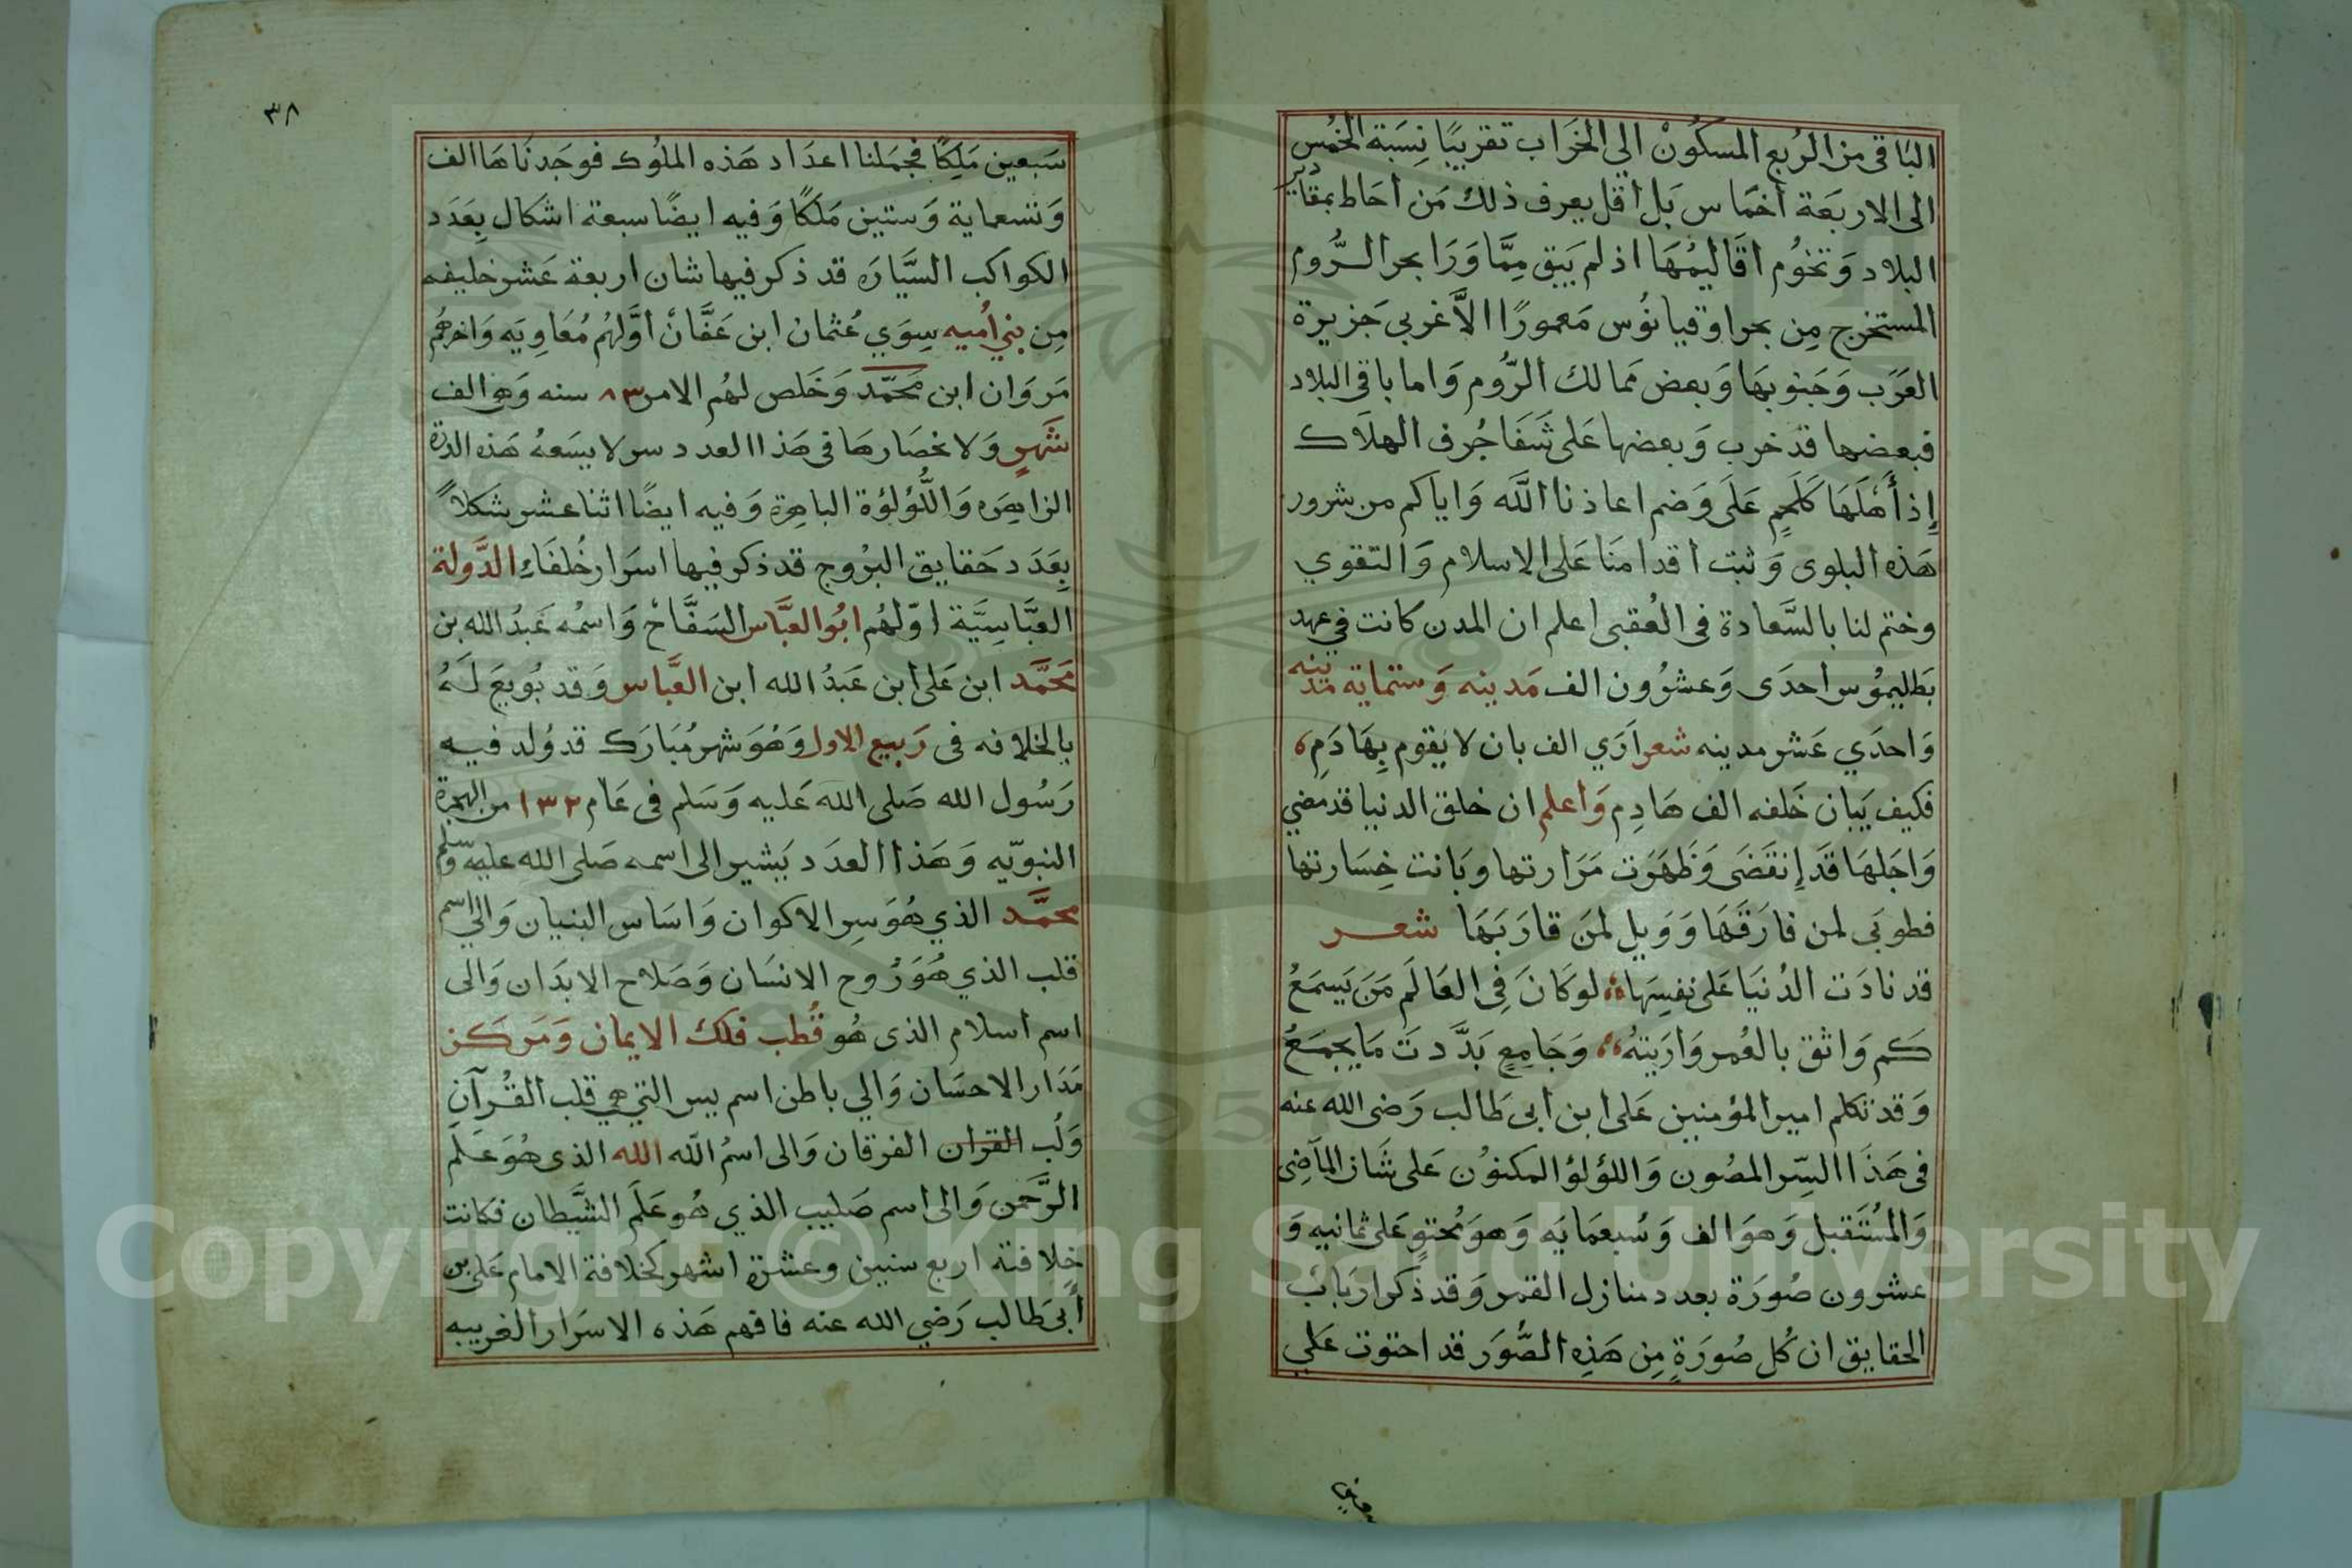 الباقى من الربع المسكُونْ الي الخَراب تقريبًا نِسَبَة الخُمس
الى الاربَعَة أخمَاس بَل أقل يعرف ذلك مَن أحَاط بمقادير
البلاد وَتخوُم اقَاليمُهَا اذ لم يَبق مِمَّا وَرَا بحر الرُّوم
المستخرج مِن بحر اوقيانُوس مَعمورًا الاَّ غربي جَزيرة
العَرَب وَجَنوبهَا وَبعض ممَالك الرُّوم وَاما باقى البلاد
فبعضها قد خرب وَبعضها عَلى شَفَا جُرف الهلاَك
إذ أَهْلَهَا كَلَحمٍ عَلَى وَضم اعاذنا اللَّه وَاياكم من شرور
هَذه البلوى وَثبت أقدامنَا عَلى الاسلام وَالتقوي
وختم لنا بالسَّعادة فى العُقبى اعلم ان المدن كانت في عهد
بَطليموُس أحدَى وَعشرُون الف مَدينه وَستماية مدينه
وَاحدَي عَشر مدينه شعر اَرَي الف بان لا يقوم بِهَادَمِ
فكيف بَبان خَلفه الف هَادِم وَاعلم ان خلق الدنيا قد مضي
وَاجَلهَا قَد إنقَضَى وَظَهَرَت مَرَارتها وبَانت خِسَارتها
فطوبَى لمن فارَقَهَا وَوَيل لمَن قارَبَهَا شعر
قد نادَت الدُنيَا عَلى نفسِهَا لو كَانَ فِى العَالَم مَن يَسمَعُ
كَم وَاثق بالعُمر وَارَيتهُ وَجَامِعٍ بَدَّدتَ مَا يجمَعُ
وَقد تكلم امير المؤمنين عَلى ابن أبى طَالب رَضى الله عنه
فى هَذَا السِّر المصُون وَاللؤلؤ المكنوُن عَلى شَان المآضِى
وَالمُستَقبل وَهوَ الف وَسُبعمَايَه وَهوَ مُحتوٍ عَلى ثمانيه وَ
عشرون صُورَة بعدد منازل القمر وَقد ذكر اربَابُ
الحقايق ان كُل صُورَةٍ مِن هَذِه الصُّوَر قد احتوت عَلي
٣٨
سَبعين مَلِكًا فجمَلنا اعدَاد هَذه الملوُك فوجَدنَاهَا الف
وَتسعماية وَستين مَلكًا وَفيه ايضًا سبعة اشكال بِعَدَد
الكواكب السَّيارَه قد ذكر فيها شان اربعة عَشر خليفه
مِن بني اُميه سِوَي عُثمان ابن عَفَّانْ أوَّلهُم مُعَاوِيَه وَاخرهُم
مَروَان ابن مَحَمَّد وَخَلص لهُم الامر ٨٣ سنه وَهو الف
شَهرٍ وَلا نحصَارهَا فى هَذا العدد سر لا يسَعهُ هَذه الدرة
الزاهِرَه وَاللُّؤلؤة الباهرة وَفيه ايضًا اثنا عشر شكلاً
بِعَدَد حَقايق البرُوج قد ذكر فيها اسرَار خُلفَاءِ الدَّولة
العبَّاسِيَّة اوّلهُم ابُو العبَّاس السَفَّاحْ وَاسمُه عَبدُ الله بن
مَحَمَّد ابن عَلى ابن عَبدُ الله ابن العَّباس وَقد بُويعَ لَهُ
بالخلافه فى رَبيع الاول وَهُوَ شهر مُبَارَك قد وُلد فيه
رَسُول الله صَلى الله عَليه وَسَلم فى عَام ١٣٢ من الهجرة
النبوّيه وَهَذا العدَد يَشير الى اسمه صَلى الله عليه وسلم
محمَّد الذي هُوَ سِر الاكوان وَاسَاس البنيان وَالي اسم
قلب الذي هُوَ رُوح الانسَان وَصَلاح الابدَان وَالى
اسم اسلام الذى هُو قُطب فلك الايمان وَمَركَز
مَدَار الاحسَان وَالي باطن اسم يس التي هي قلب القُرآن
وَلُب القران الفرقان وَالى اسمُ اللّه الله الذى هُوَ عَلَم
الرَّحمَن وَالى اسم صَليب الذي هُو عَلَم الشَّيطان فكانت
خِلافته اربع سنين وعشرة اشهر كخلافة الامام عَلى بن
أبى طَالب رَضي الله عنه فافهم هَذه الاسرَار الغريبه